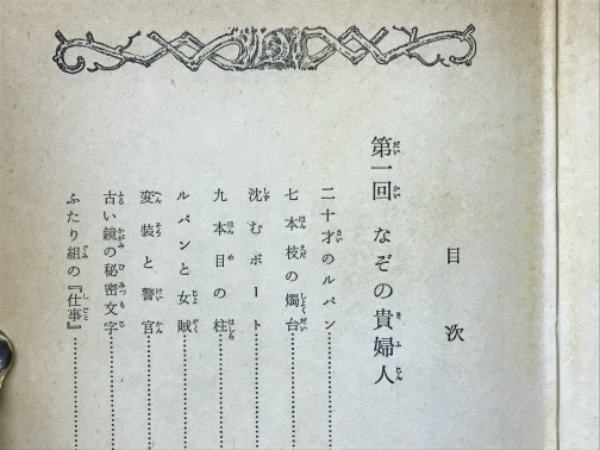 目次
第一回 なぞの貴婦人
二十才のルパン
七本枝の燭台
沈むボート
九本目の柱
ルパンと女賊
変装と警官
古い鏡の秘密文字
ふたり組の『仕事』